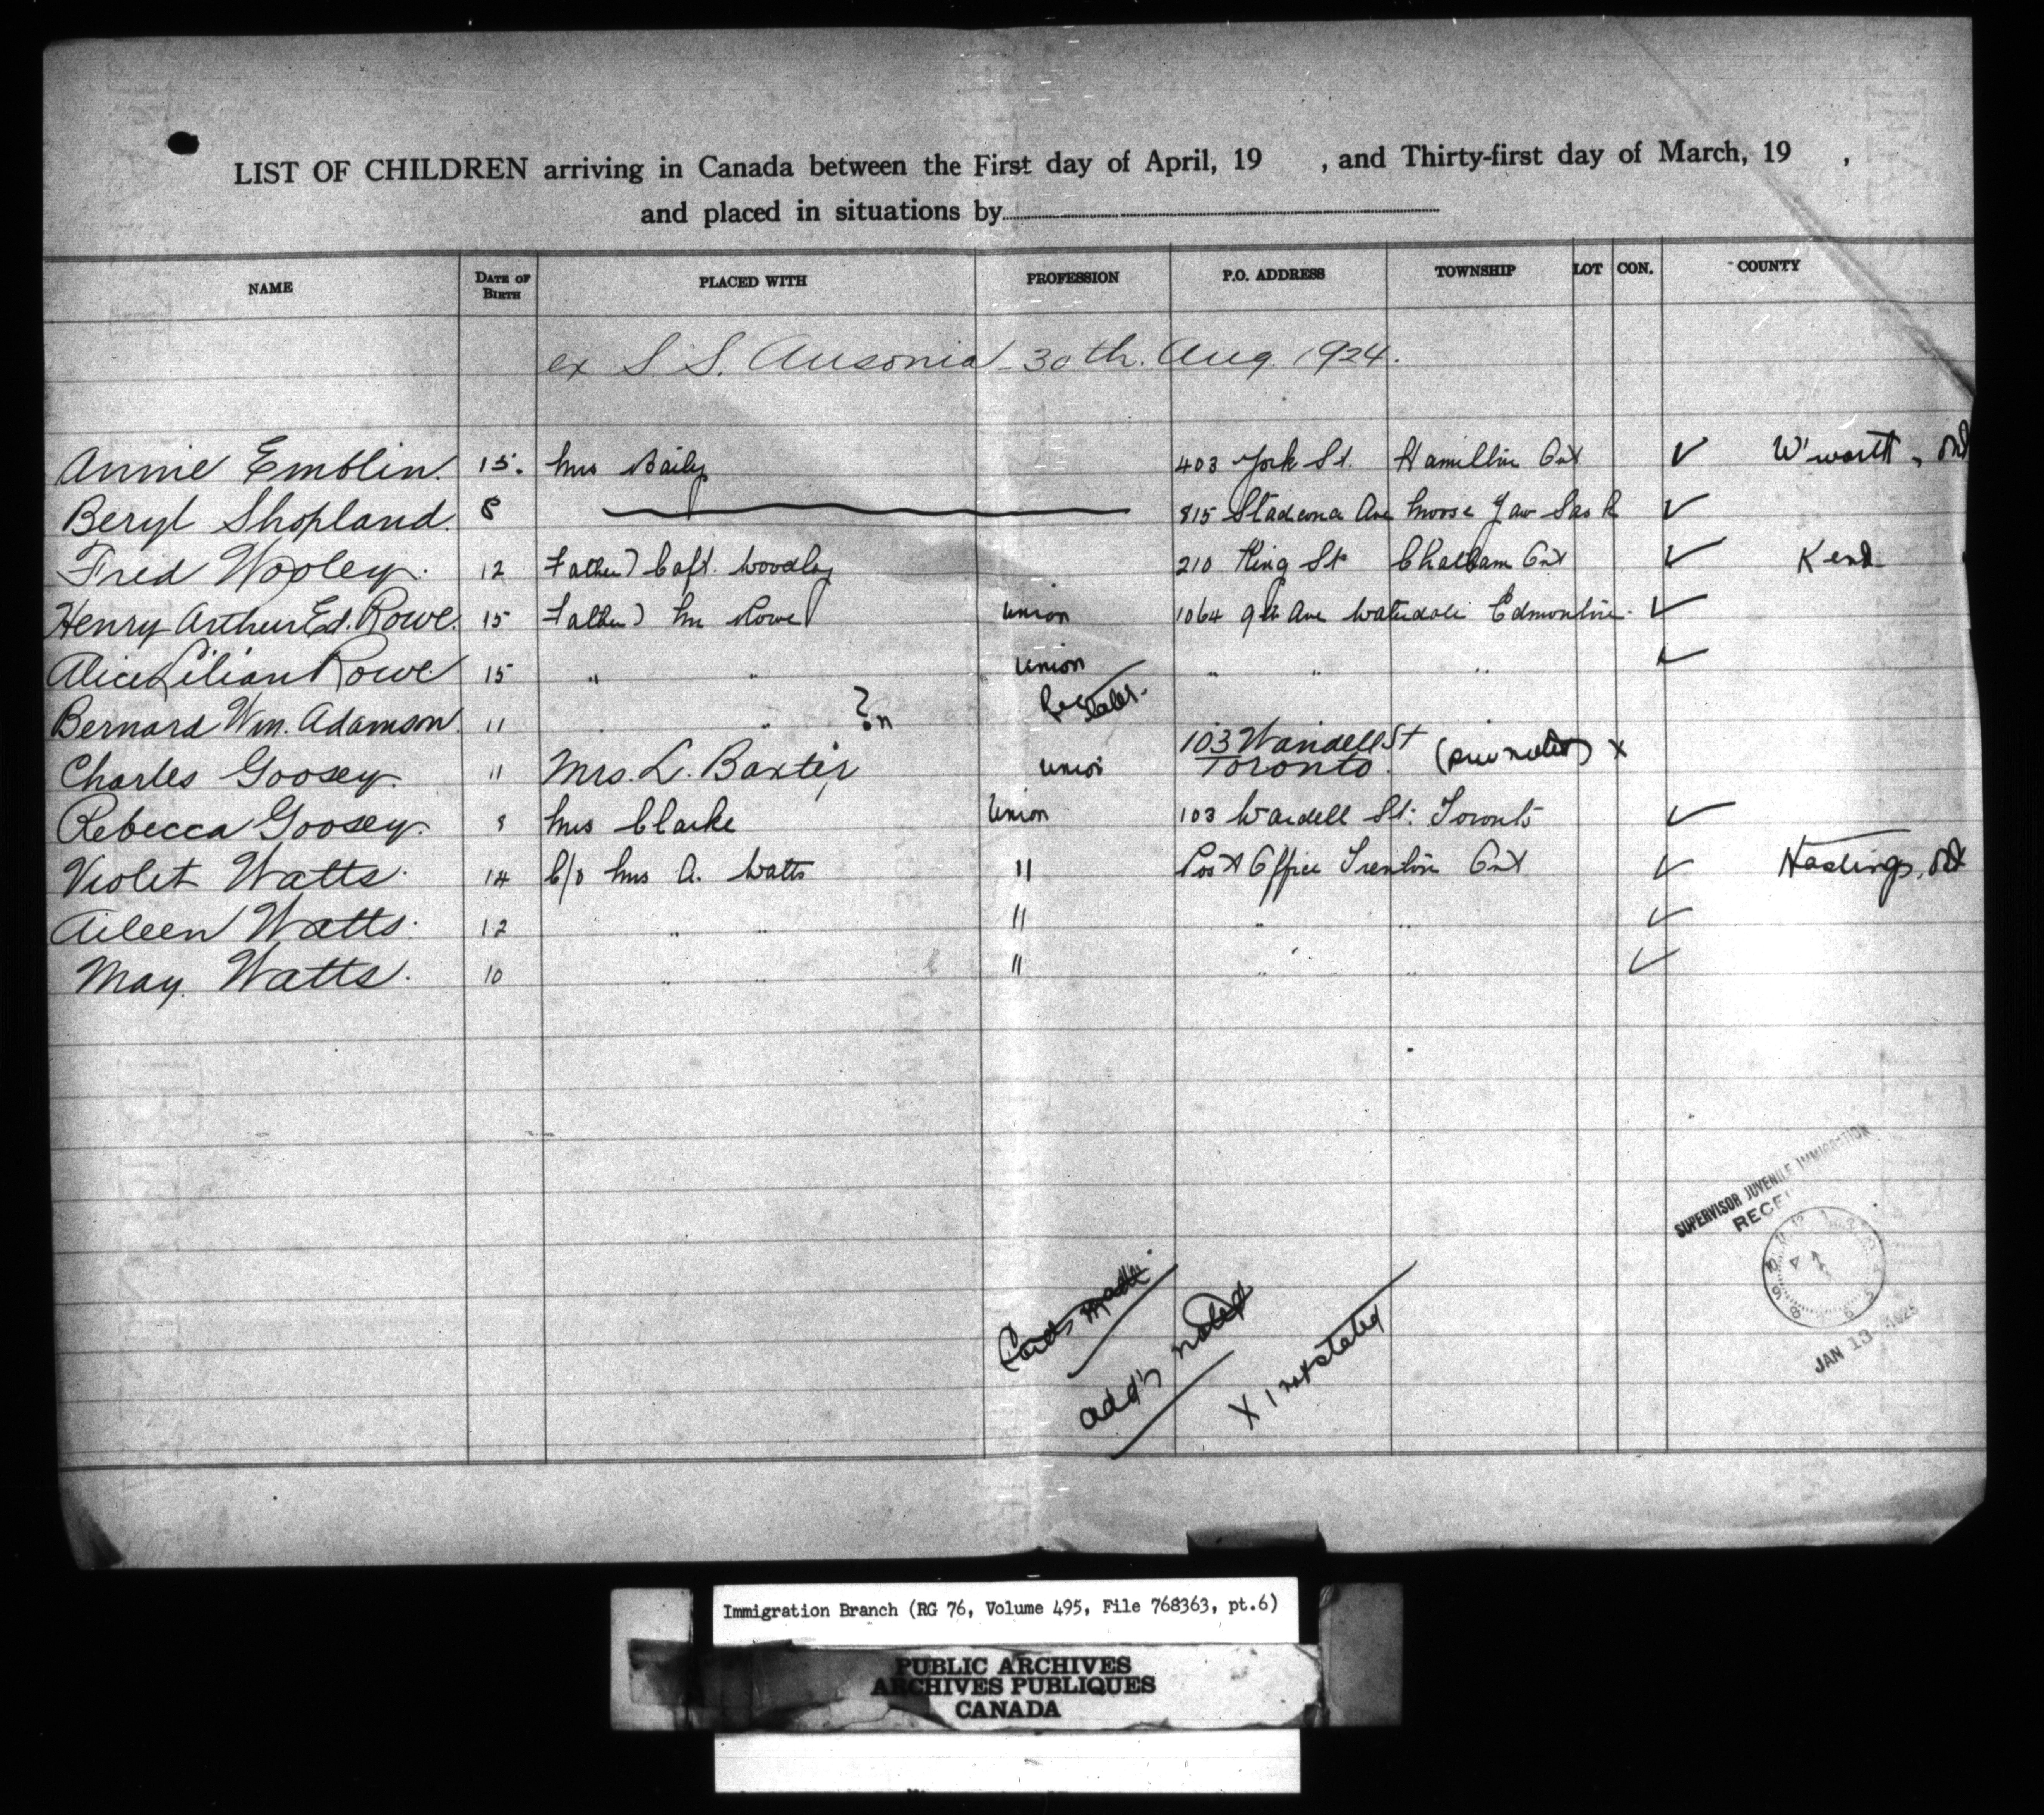 LIST OF CHILDREN arriving in Canada between the First day of April, 19 , and Thirty-first day of March, 19 ,
and placed in situations by
NAME DATE OF BIRTH PLACED WITH PROFESSION P.O. ADDRESS TOWNSHIP LOT CON. COUNTY
ex S.S. Ausonia - 30th. Aug. 1924.
Annie Emblin. 15. Mrs Baily 403 York St. Hamilton Ont ✓ W'worth, Ont
Beryl Shopland. 8 815 Stadcona Ave Moose Jaw Sask ✓
Fred Wooley. 12 Father) Capt. Woodley 210 King St Chatham Ont ✓ Kent
Henry Arthur Ed. Rowe. 15 Father) Mr Rowe Union 1064 9th Ave Edmonton. ✓
Alice Lilian Rowe 15 " " Union " " " ✓
Bernard Wm. Adamson. 11 " ?
Charles Goosey. 11 Mrs. L. Baxter Union 103 Wardell St Toronto. x
Rebecca Goosey. 8 Mrs Clarke Union 103 Wardell St. Toronto ✓
Violet Watts. 14 C/o Mrs A. Watts " Post Office Trenton Ont ✓ Hastings, Ont
Aileen Watts. 12 " " " " " ✓
May. Watts. 10 " " " " " ✓
SUPERVISOR JUVENILE IMMIGRATION
JAN 13 1925
Cards made
add's noted
X 1 not stated
Immigration Branch (RG 76, Volume 495, File 768363, pt.6)
PUBLIC ARCHIVES
ARCHIVES PUBLIQUES
CANADA